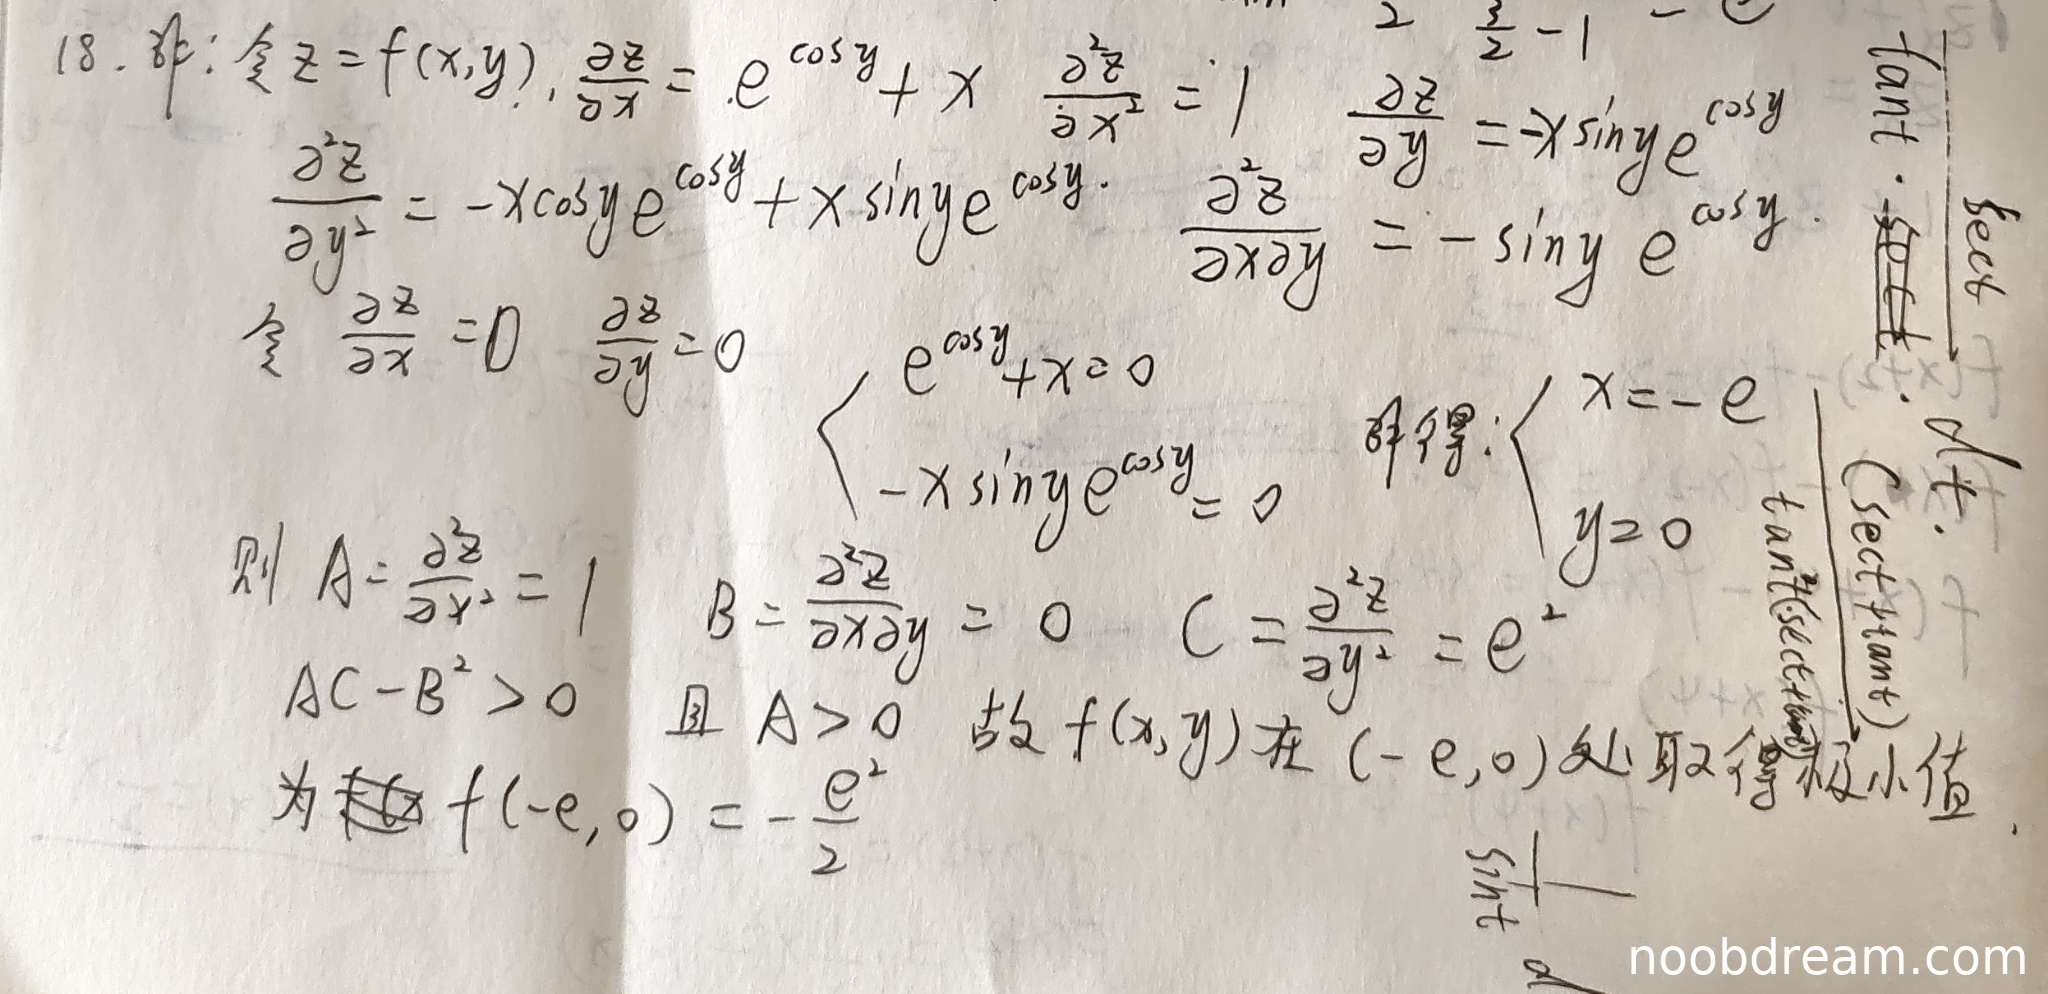 18. 解: 令 z = f(x,y), ∂z/∂x = e^{cosy} + x  ∂²z/∂x² = 1  ∂z/∂y = -x siny e^{cosy}
∂²z/∂y² = -x cosy e^{cosy} + x siny e^{cosy}.  ∂²z/∂x∂y = - siny e^{cosy}.
令 ∂z/∂x = 0  ∂z/∂y = 0  { e^{cosy} + x = 0  -x siny e^{cosy} = 0  解得: { x = -e  y = 0
则 A = ∂²z/∂x² = 1  B = ∂²z/∂x∂y = 0  C = ∂²z/∂y² = e²
AC - B² > 0 且 A > 0 故 f(x,y) 在 (-e,0) 处取得极小值.
为 f(-e,0) = - e²/2
2  3/2 - 1  - e
sect
tant ·
dt.
(sect+tant)
sint
d
noobdream.com